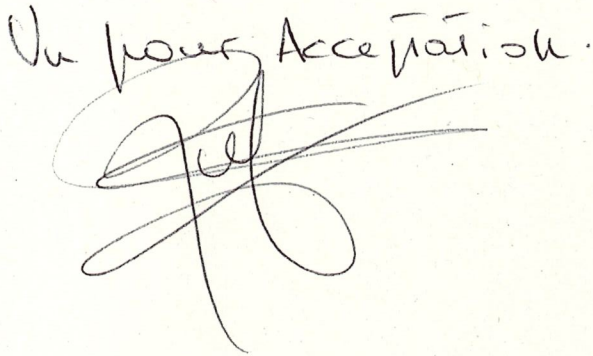 Vu pour Acceptation.